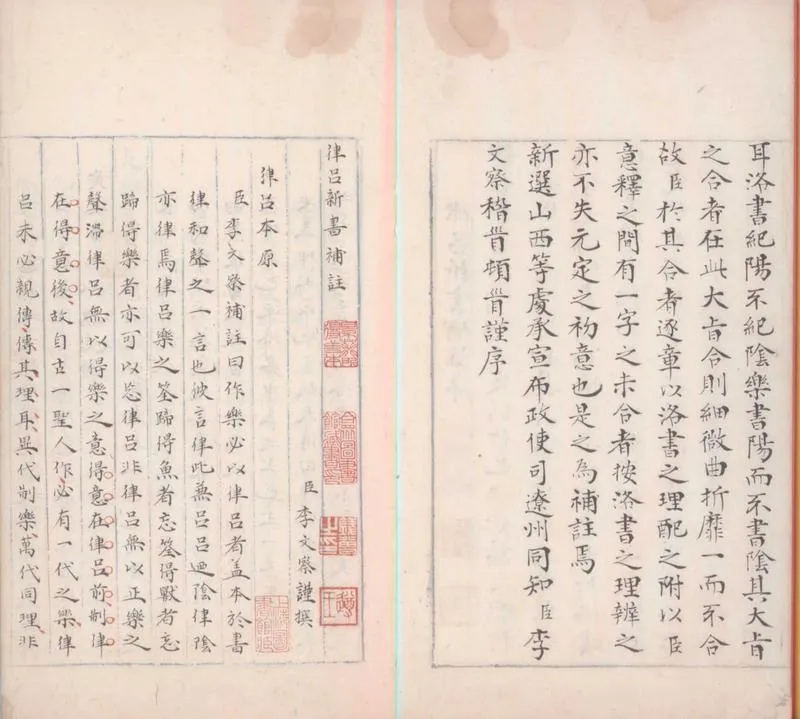 耳洛書紀陽不紀陰樂書陽而不書陰其大旨
之合者在此大旨合則細微曲折靡一而不合
故臣於其合者逐章以洛書之理配之附以臣
意釋之間有一字之未合者按洛書之理辨之
亦不失元定之初意也是之為補註焉
新選山西等處承宣布政使司遼州同知臣李
文察稽首頓首謹序
律呂新書補註
臣李文察謹撰
律呂本原
臣李文察補註曰作樂必以律呂者盖本於書
律和聲之一言也彼言律此兼呂呂迺陰律陰
亦律焉律呂樂之筌蹄得魚者忘筌得獸者忘
蹄得樂者亦可以忘律呂非律呂無以正樂之
聲滯律呂無以得樂之意得意在律呂前制律
在得意後故自古一聖人作必有一代之樂律
呂未必親傳傳其理耳異代制樂萬代同理非